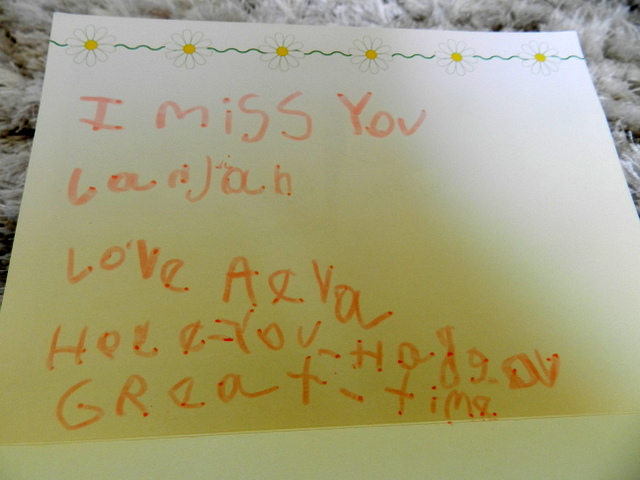 I miss You
Lanjah
Love Aeva
Hoee-You-Had a
GReat-time